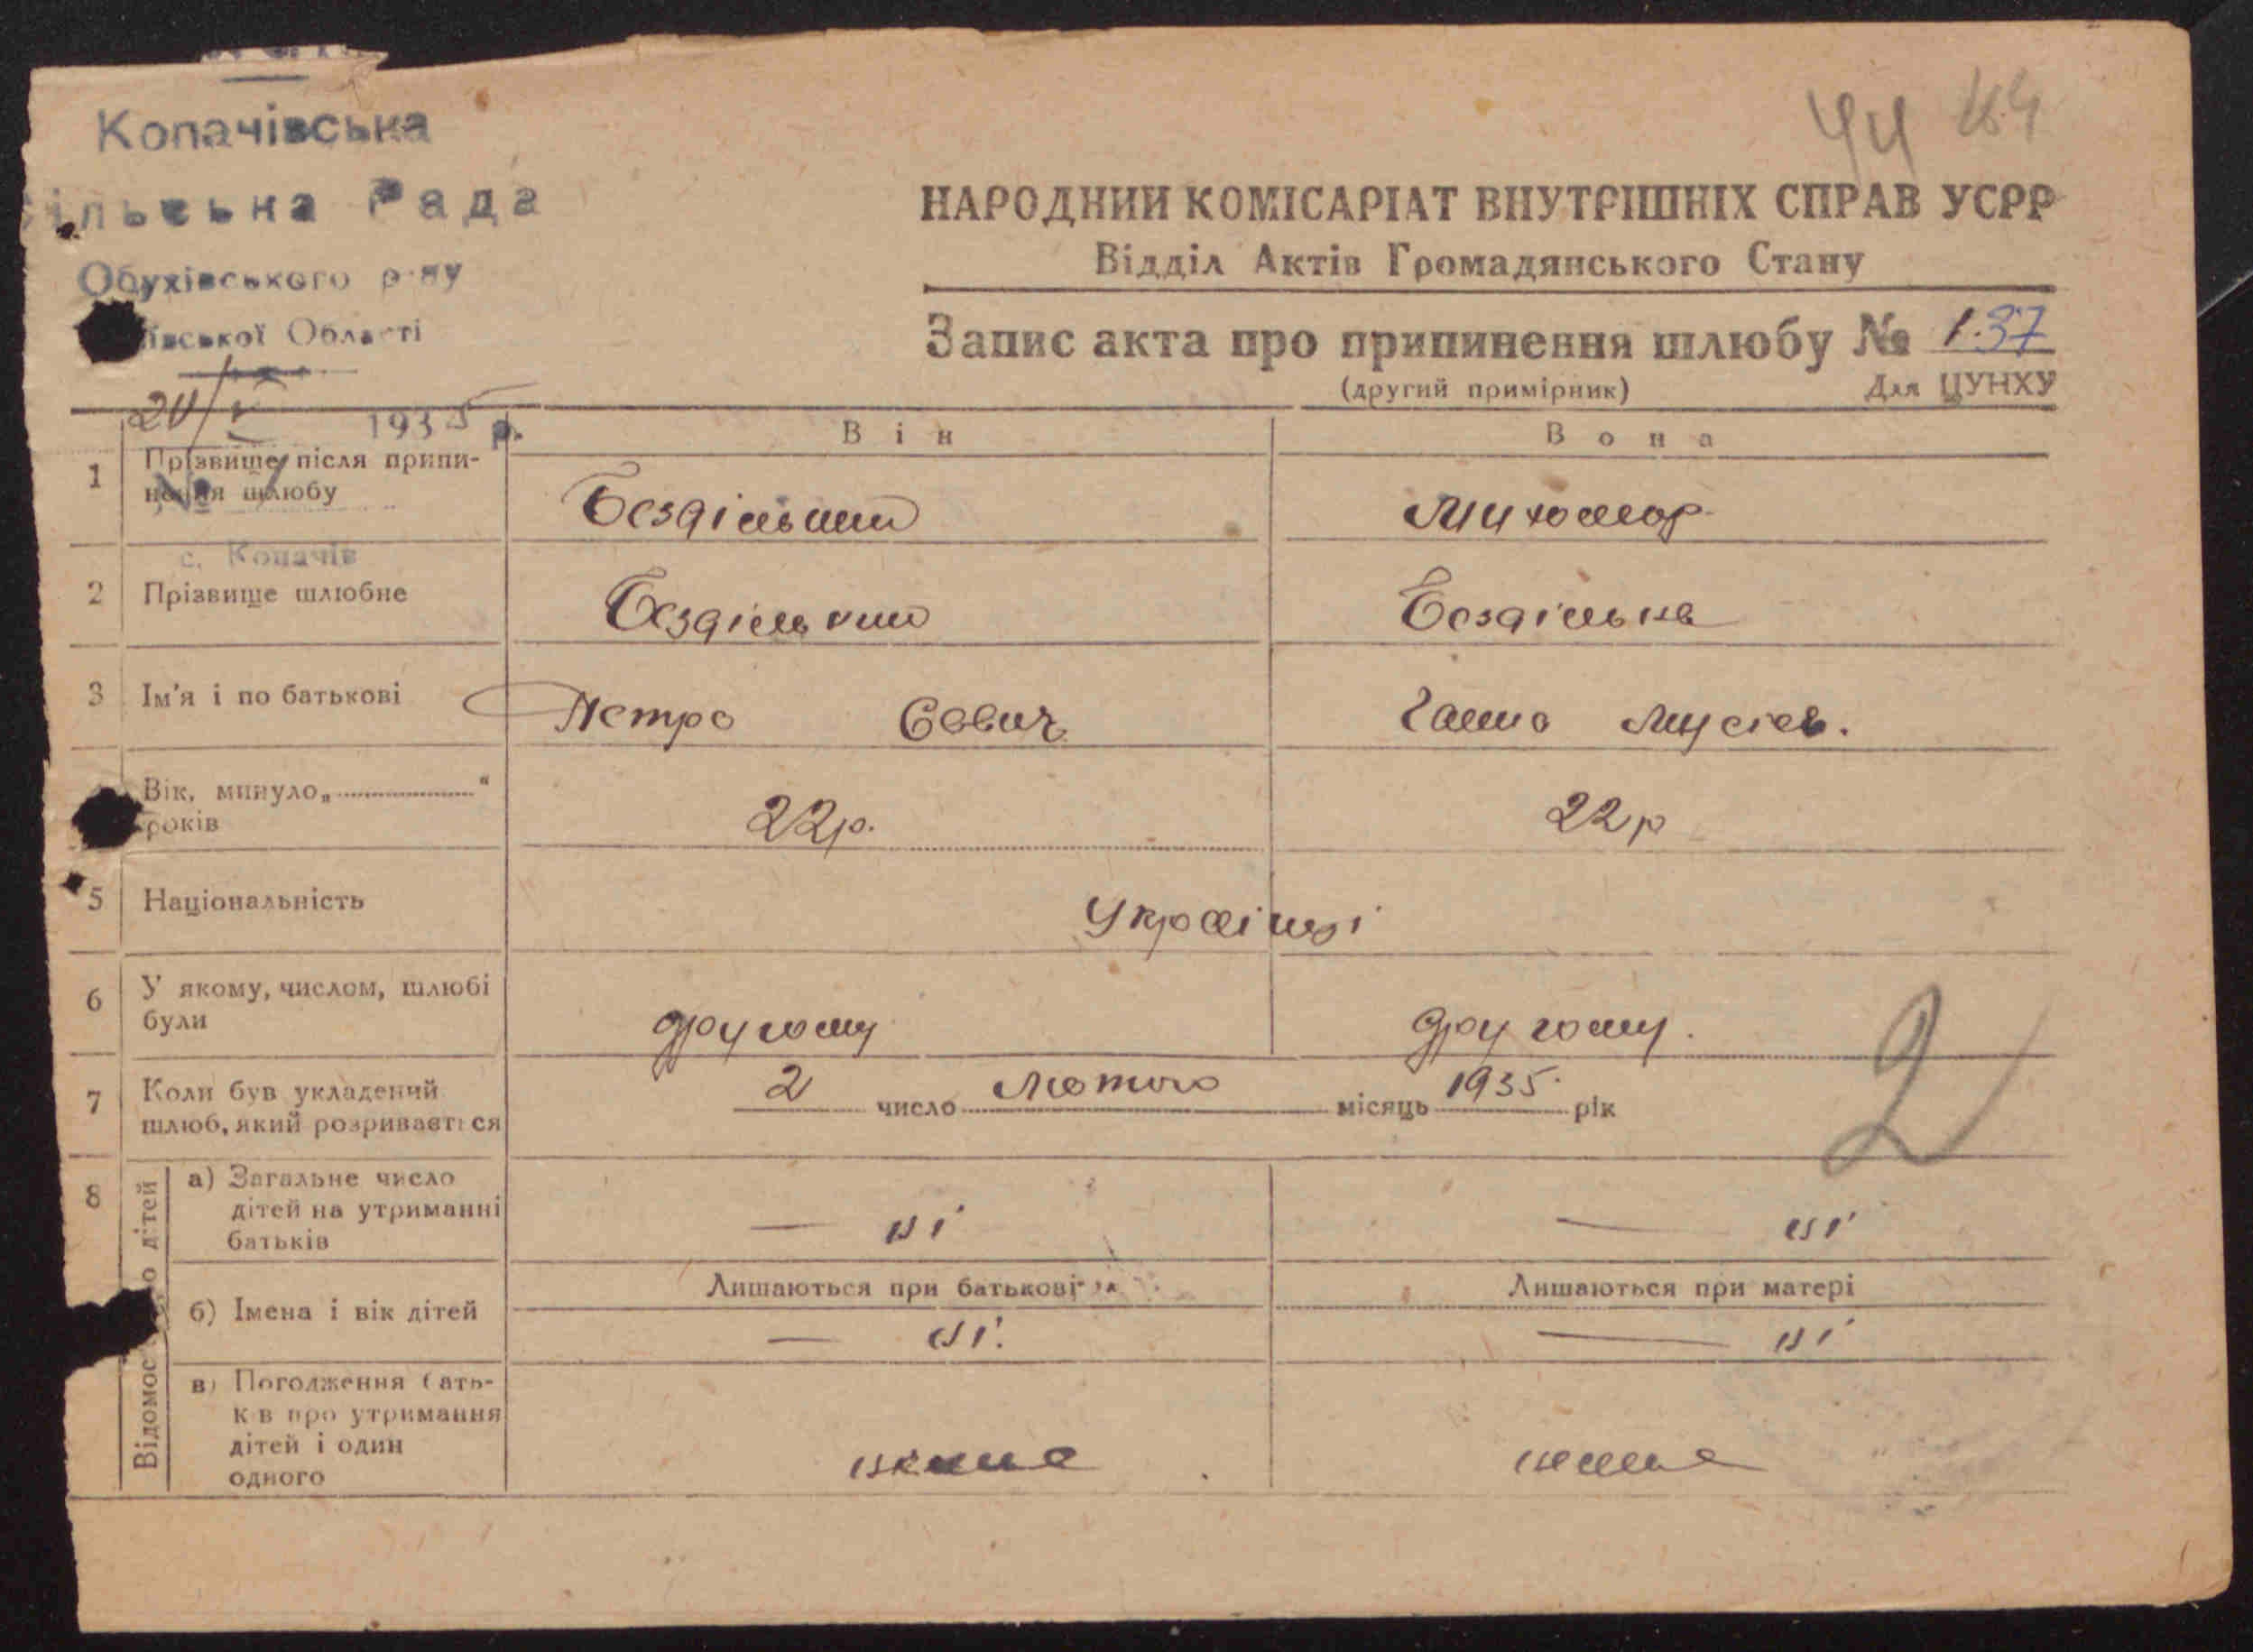 Копачівська
ільська Рада
Обухівського р-ну
ївської Області
20/V 1935 р.
№ 7
с. Копачів
44
НАРОДНИЙ КОМІСАРІАТ ВНУТРІШНІХ СПРАВ УСРР
Відділ Актів Громадянського Стану
Запис акта про припинення шлюбу № 1.37
(другий примірник) Для ЦУНХУ
Він Вона
1 Прізвище після припи-
нення шлюбу
Бездільний
2 Прізвище шлюбне Бездільний Бездільна
3 Ім'я і по батькові Петро Савич Ганна Мусієв.
Вік, минуло „ “
років
22р. 22р
5 Національність Українці
6 У якому, числом, шлюбі
були
другому другому.
7 Коли був укладений
шлюб, який розривається
2 число лютого місяць 1935 рік
2
8 Відомос о дітей
а) Загальне число
дітей на утриманні
батьків
— ні — ні
Лишаються при батькові Лишаються при матері
б) Імена і вік дітей — ні. — ні
в) Погодження бать-
ків про утримання
дітей і один
одного
нема нема